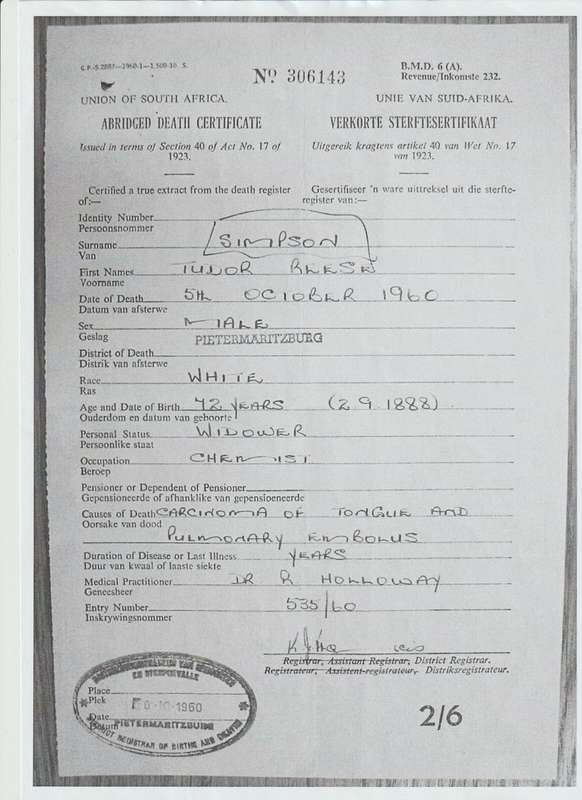 G.P.-S.2887—1960-1—1,500-10. S.
B.M.D. 6 (A).
Revenue/Inkomste 232.
Nº 306143
UNION OF SOUTH AFRICA.
UNIE VAN SUID-AFRIKA.
ABRIDGED DEATH CERTIFICATE
VERKORTE STERFTESERTIFIKAAT
Issued in terms of Section 40 of Act No. 17 of
1923.
Uitgereik kragtens artikel 40 van Wet No. 17
van 1923.
Certified a true extract from the death register
of:—
Gesertifiseer 'n ware uittreksel uit die sterfte-
register van:—
Identity Number
Persoonsnommer
Surname SIMPSON
Van
First Names TUDOR REESE
Voorname
Date of Death 5TH OCTOBER 1960
Datum van afsterwe
Sex MALE
Geslag PIETERMARITZBURG
District of Death
Distrik van afsterwe
Race WHITE
Ras
Age and Date of Birth 72 YEARS (2.9.1888)
Ouderdom en datum van geboorte
Personal Status WIDOWER
Persoonlike staat
Occupation CHEMIST
Beroep
Pensioner or Dependent of Pensioner
Gepensioeneerde of afhanklike van gepensioeneerde
Causes of Death CARCINOMA OF TONGUE AND
Oorsake van dood
PULMONARY EMBOLUS
Duration of Disease or Last Illness YEARS
Duur van kwaal of laaste siekte
Medical Practitioner DR R HOLLOWAY
Geneesheer
Entry Number 535/60
Inskrywingsnommer
Registrar, Assistant Registrar, District Registrar.
Registrateur, Assistent-registrateur, Distriksregistrateur.
EN STERFGEVALLE
Place
Plek
-10-1960
Date
Datum PIETERMARITZBURG
DISTRICT REGISTRAR OF BIRTHS AND DEATHS
2/6